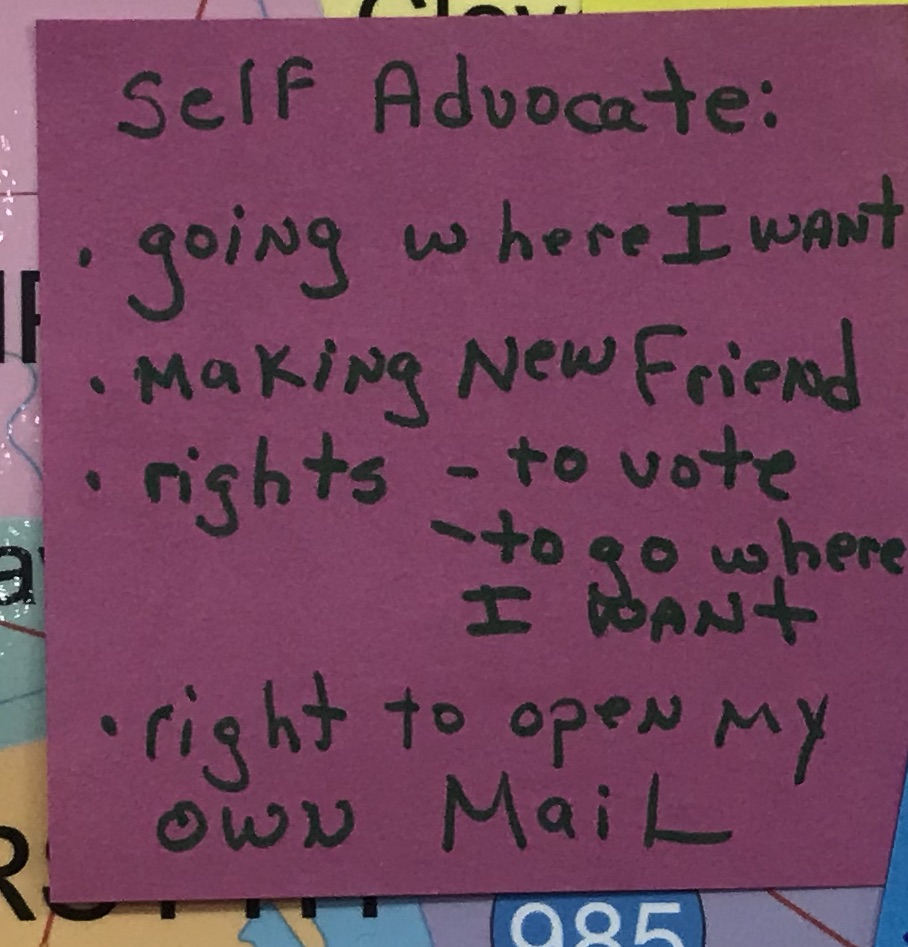 Self Advocate:
. going where I WANT
. Making New Friend
. rights - to vote
- to go where
I WANT
. right to open my
own MaiL
985